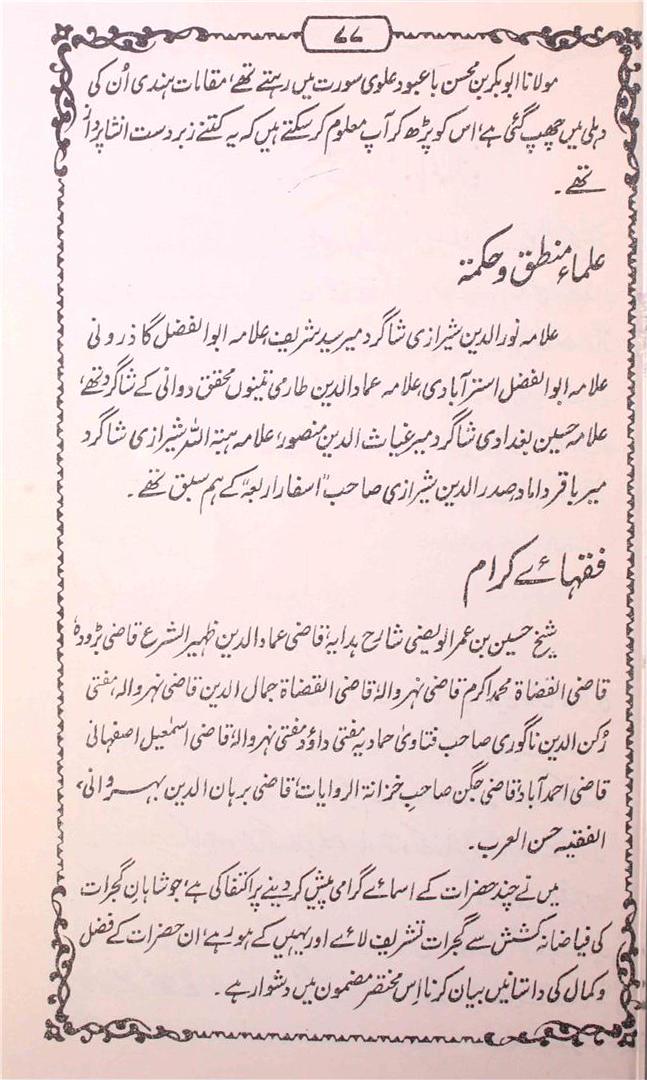 ۷۷
مولانا ابوبکر بن محسن باعبود علوی سورت میں رہتے تھے، مقامات ہندی اُن کی
دہلی میں چھپ گئی ہے، اس کو پڑھ کر آپ معلوم کر سکتے ہیں کہ یہ کتنے زبردست انشا پرداز
تھے۔
علماء منطق و حکمۃ
علامہ نور الدین شیرازی شاگرد میر سید شریف، علامہ ابوالفضل گاذرونی
علامہ ابوالفضل استرآبادی، علامہ عماد الدین طارمی تینوں محقق دوانی کے شاگرد تھے،
علامہ حسین بغدادی شاگرد میر غیاث الدین منصور، علامہ ہبۃ اللہ شیرازی شاگرد
میر باقر داماد، صدر الدین شیرازی صاحب "اسفار اربعہ" کے ہم سبق تھے۔
فقہائے کرام
شیخ حسین بن عمر الویضی شارح ہدایہ، قاضی عماد الدین ظہیر الشرع قاضی بڑودہ
قاضی القضاۃ محمد اکرم قاضی نہروالہ، قاضی القضاۃ جمال الدین قاضی نہروالہ، مفتی
رکن الدین ناگوری صاحب فتاویٰ حمادیہ، مفتی داؤد مفتی نہروالہ، قاضی اسمٰعیل اصفہانی
قاضی احمد آباد، قاضی جگن صاحبِ خزانۃ الروایات، قاضی برہان الدین نہروانی،
الفقیہ حسن العرب۔
میں نے چند حضرات کے اسمائے گرامی پیش کر دینے پر اکتفا کی ہے، جو شاہانِ گجرات
کی فیاضانہ کشش سے گجرات تشریف لائے اور یہیں کے ہو رہے، ان حضرات کے فضل
و کمال کی داستانیں بیان کرنا اس مختصر مضمون میں دشوار ہے۔